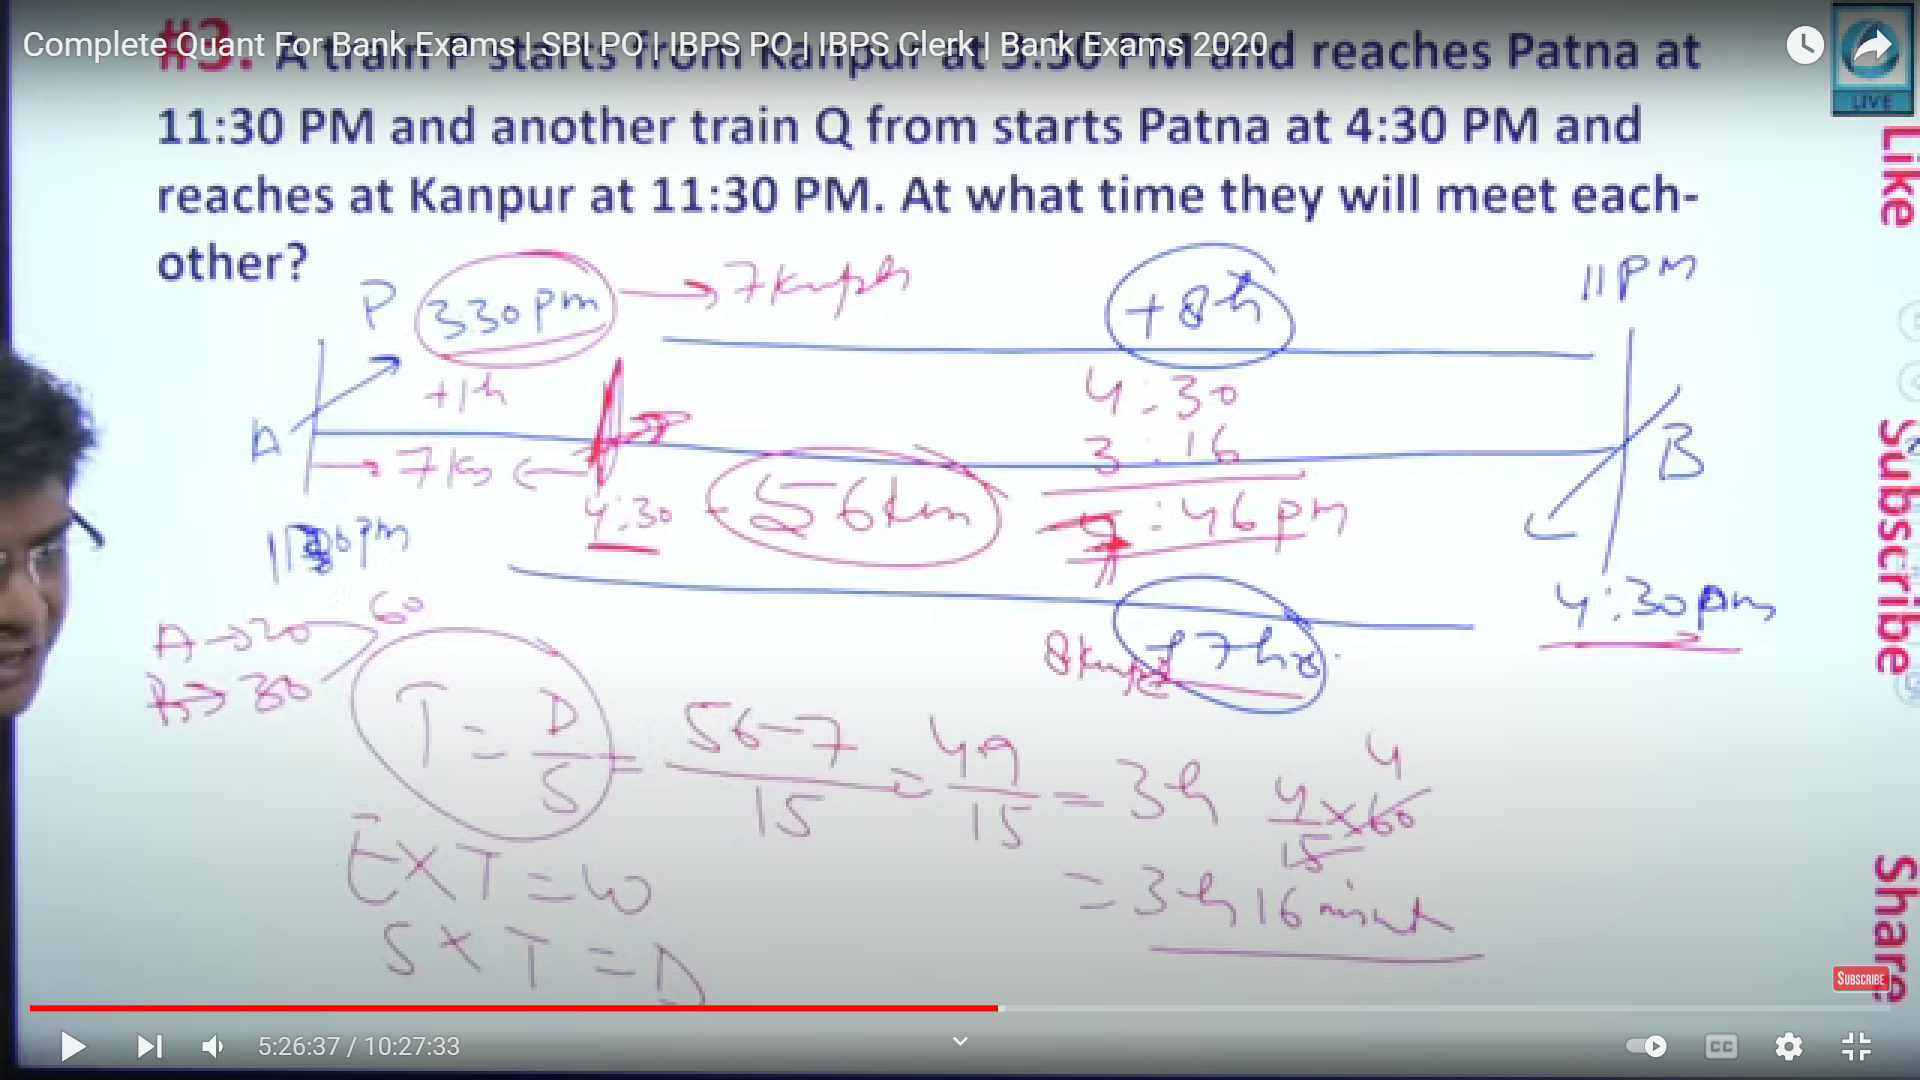 Complete Quant For Bank Exams | SBI PO | IBPS PO | IBPS Clerk | Bank Exams 2020
#3. A train P starts from Kanpur at 3:30 PM and reaches Patna at
11:30 PM and another train Q from starts Patna at 4:30 PM and
reaches at Kanpur at 11:30 PM. At what time they will meet each-
other?
LIVE
Like
Subscribe
Share
P 330pm → 7kmph
+8h
11PM
+1h
4:30
A
B
3:16
7km
4:30
56km
7:46pm
4:30pm
60
A → 20
B → 30
8kmph
+7hrs
T = D/S = 56-7/15 = 49/15 = 3h 4/15 × 60 4
= 3h 16 minut
E × T = W
S × T = D
SUBSCRIBE
5:26:37 / 10:27:33
CC